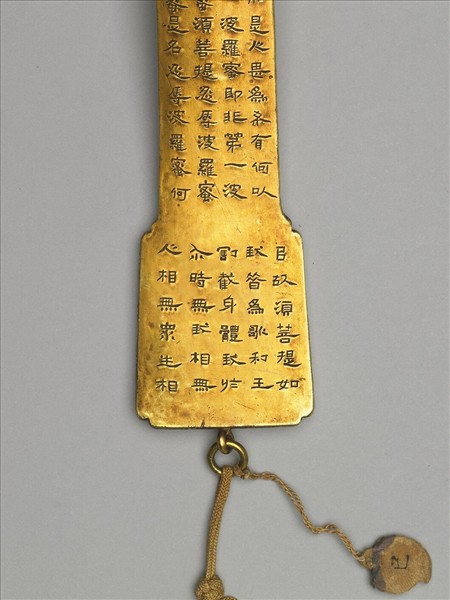 是人甚為希有何以
波羅蜜即非第一波
蜜須菩提忍辱波羅蜜
蜜是名忍辱波羅蜜何
㠯故須菩提如
我昔為歌利王
割截身體我於
尒時無我相無
人相無眾生相